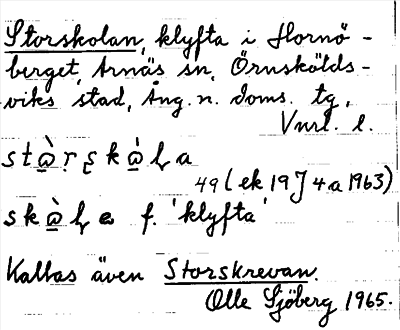 Storskolan, klyfta i Hornö-
berget, Arnäs sn, Örnskölds-
viks stad, Ång. n. doms. tg,
Vnrl. l.
49 (ek 19 J 4a 1963)
f. 'klyfta'
Kallas även Storskrevan.
Olle Sjöberg 1965.